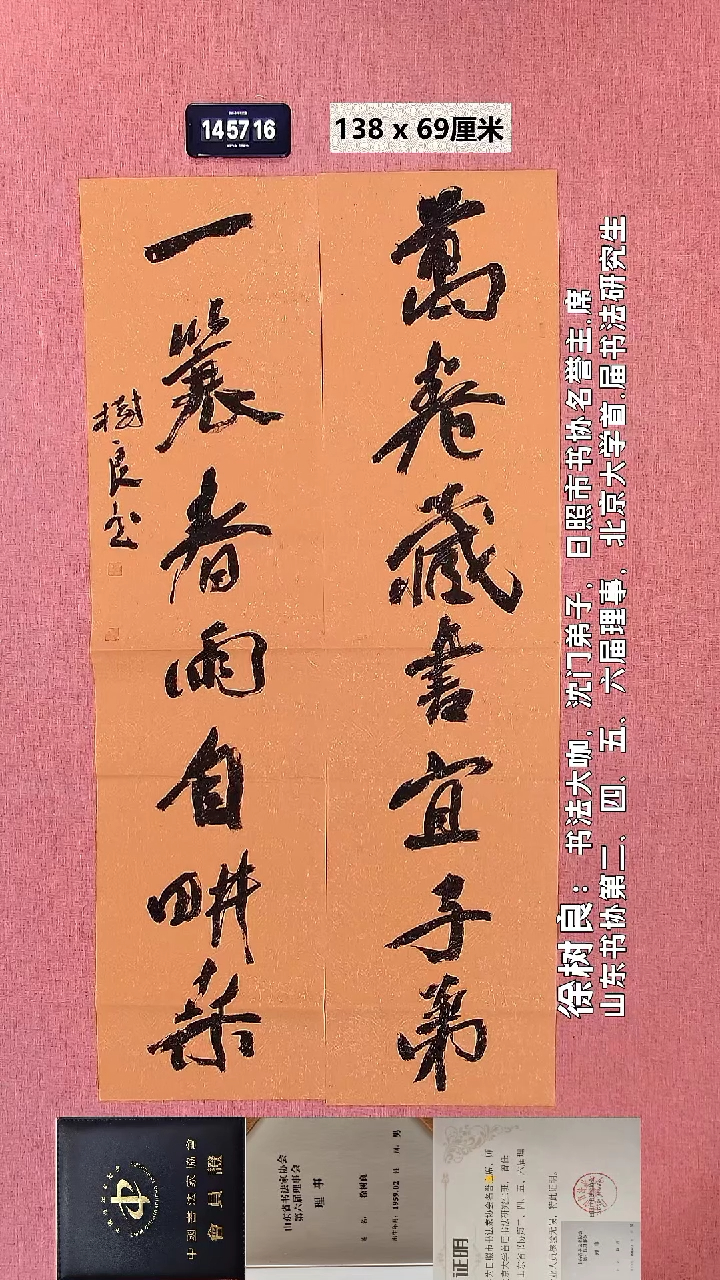 14 57 16
138 x 69厘米
萬卷藏書宜子弟
一蓑春雨自耕桑
樹良書
徐树良：书法大咖，沈门弟子，日照市书协名誉主.席
山东书协第二、四、五、六届理事，北京大学首.届书法研究生
中國書法家協會
會員證
山东省书法家协会
第六届理事会
理 事
徐树良
1959.02
男
证明